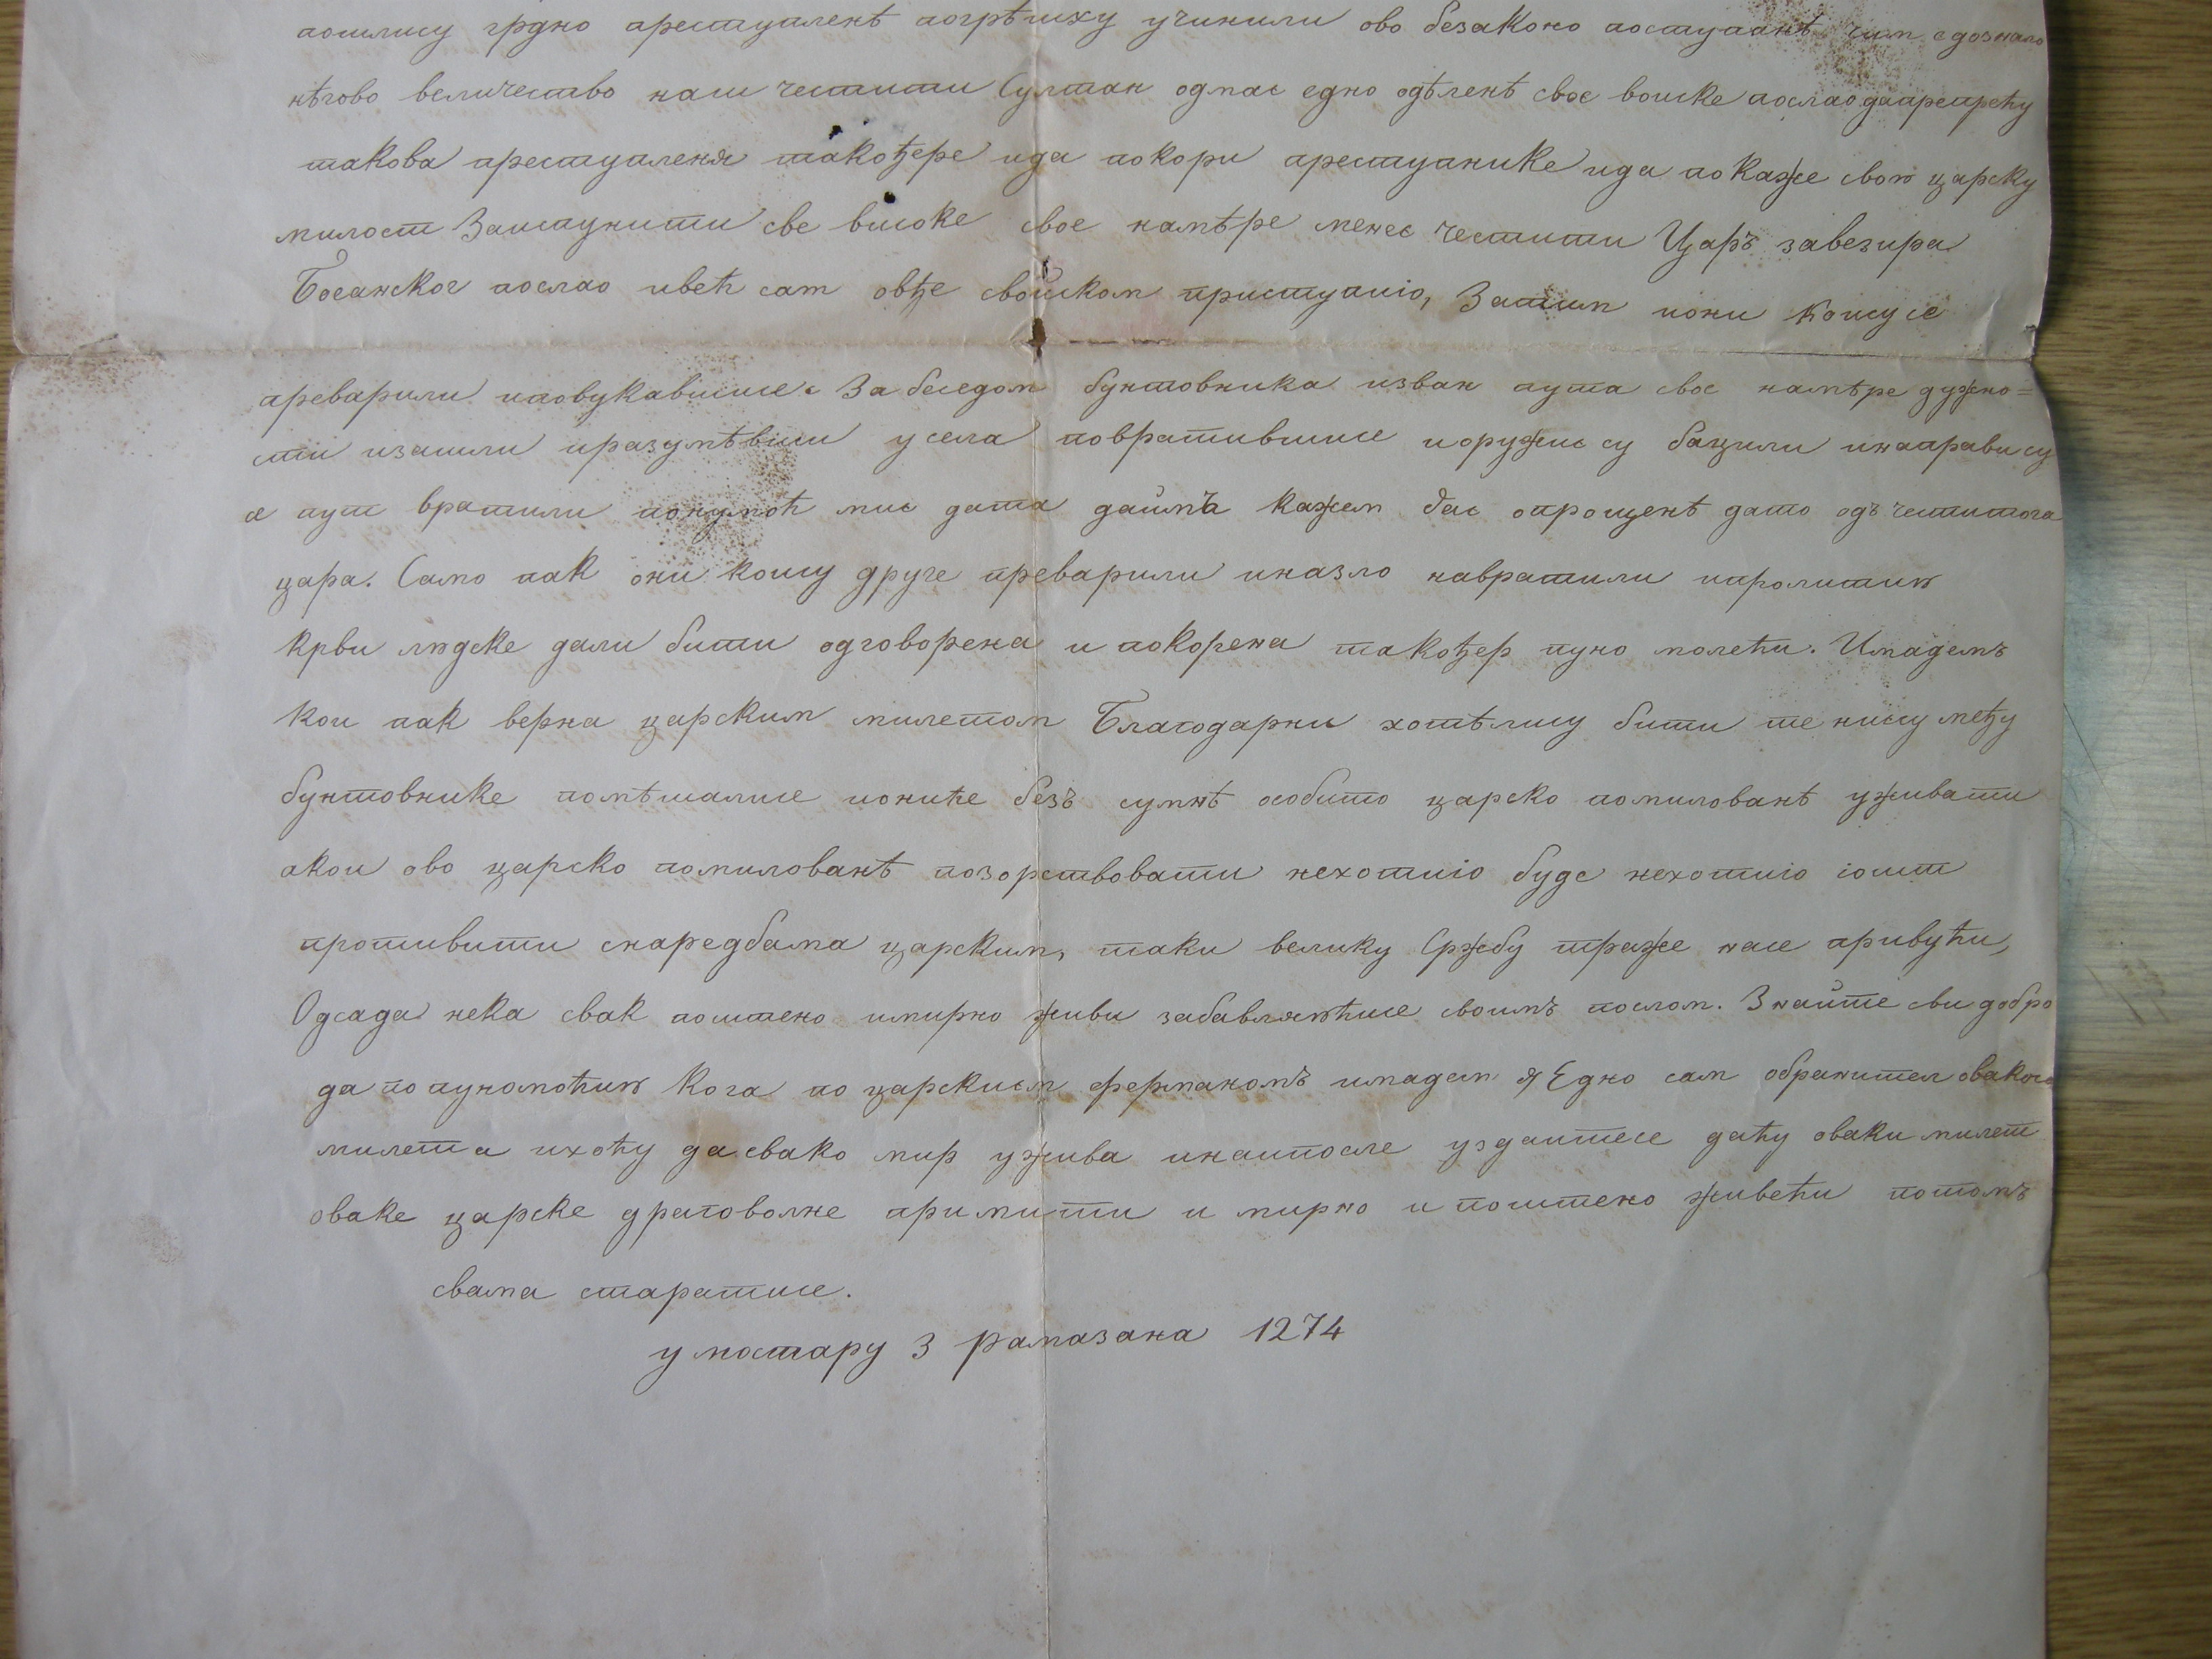 пошлису грдно преступленѣ погрѣшку учинили ово безаконо поступанѣ чим є дознало
нѣгово величество наш честити Султан одмає едно одѣленѣ своє воиске послао дапрепрећу
такова преступленя такођере ида покори преступнике ида покаже свою царску
милост Заиступити све високе своє намѣре менеє честити Царъ завезира
Босанског послао ивећ сам овђе своиском приступіо, Затим иони коису се
преварили иповукавшисе За беседом бунтовника изван пута своє намѣре дужно=
сти изашли иразумѣвши у села повратившисе иоружиє су бацили инаправи су
е пут вратили помоћ миє дата даимъ кажем дає опрощенѣ дато одъ честитога
цара. Само пак они коису друге преварили иназло навратили ипролитию
крви людске дали бити одговорена и покорена такођер пуно молећи. Имадемъ
кои пак верна царским милетом Благодарни хотѣлису бити те нису међу
бунтовнике помѣшалисе иониће безъ сумнѣ особито царско помилованѣ уживати
акои ово царско помилованѣ позорствовати нехотиіо буде нехотиіо іошт
противити снаредбама царским, таки велику Сржбу траже насе привући,
Одсада нека свак поштено имирно живи забавляюћисе своимъ послом. Знаите сви добро
да по пуномоћию кога по царскием ферманомъ имадем я Едно сам обранител оваког
милета ихоћу да свако мир ужива инаипосле уздаитесе даћу оваки милет
оваке царске драговолне примити и мирно и поштено живећи потомъ
свама старатисе.
у мостару 3 рамазана 1274